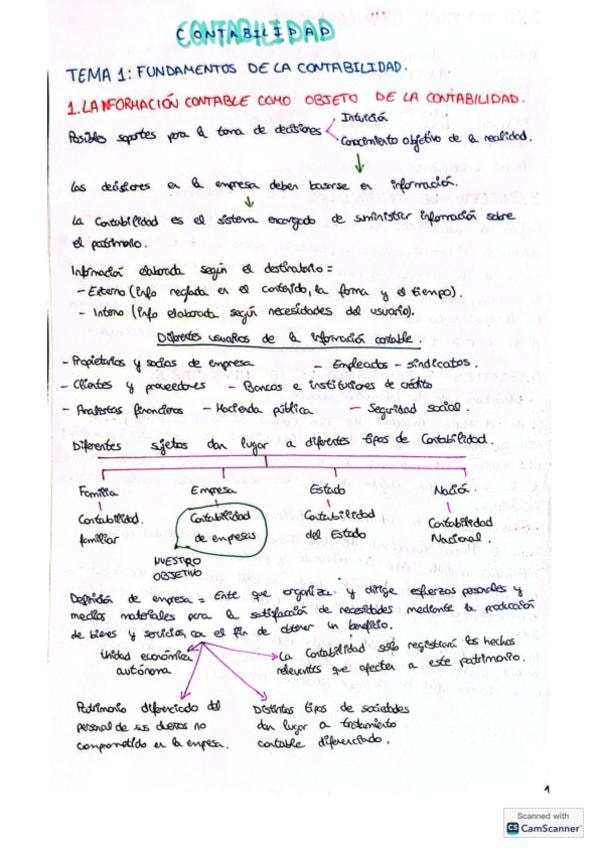 CONTABILIDAD
TEMA 1: FUNDAMENTOS DE LA CONTABILIDAD.
1. LA INFORMACIÓN CONTABLE COMO OBJETO DE LA CONTABILIDAD.
Posibles soportes para la toma de decisiones
Intuición
Conocimiento objetivo de la realidad.
Las decisiones en la empresa deben basarse en información.
La Contabilidad es el sistema encargado de suministrar información sobre
el patrimonio.
Información elaborada según el destinatario =
- Externo (info reglada en el contenido, la forma y el tiempo).
- Interno (info elaborada según necesidades del usuario).
Diferentes usuarios de la información contable.
- Propietarios y socios de empresa - Empleados - sindicatos.
- Clientes y proveedores - Bancos e instituciones de crédito
- Analistas financieros - Hacienda pública - Seguridad social.
Diferentes sujetos dan lugar a diferentes tipos de Contabilidad.
Familia Empresa Estado Nación.
Contabilidad. Contabilidad Contabilidad Contabilidad
familiar de empresas del Estado Nacional.
NUESTRO
OBJETIVO
Definición de empresa = Ente que organiza y dirige esfuerzos personales y
medios materiales para la satisfacción de necesidades mediante la producción
de bienes y servicios, con el fin de obtener un beneficio.
Unidad económica
autónoma
La Contabilidad solo registrará los hechos
relevantes que afecten a este patrimonio.
Patrimonio diferenciado del
personal de sus dueños no
comprometido en la empresa.
Distintos tipos de sociedades
dan lugar a tratamiento
contable diferenciado.
1
Scanned with
CS CamScanner